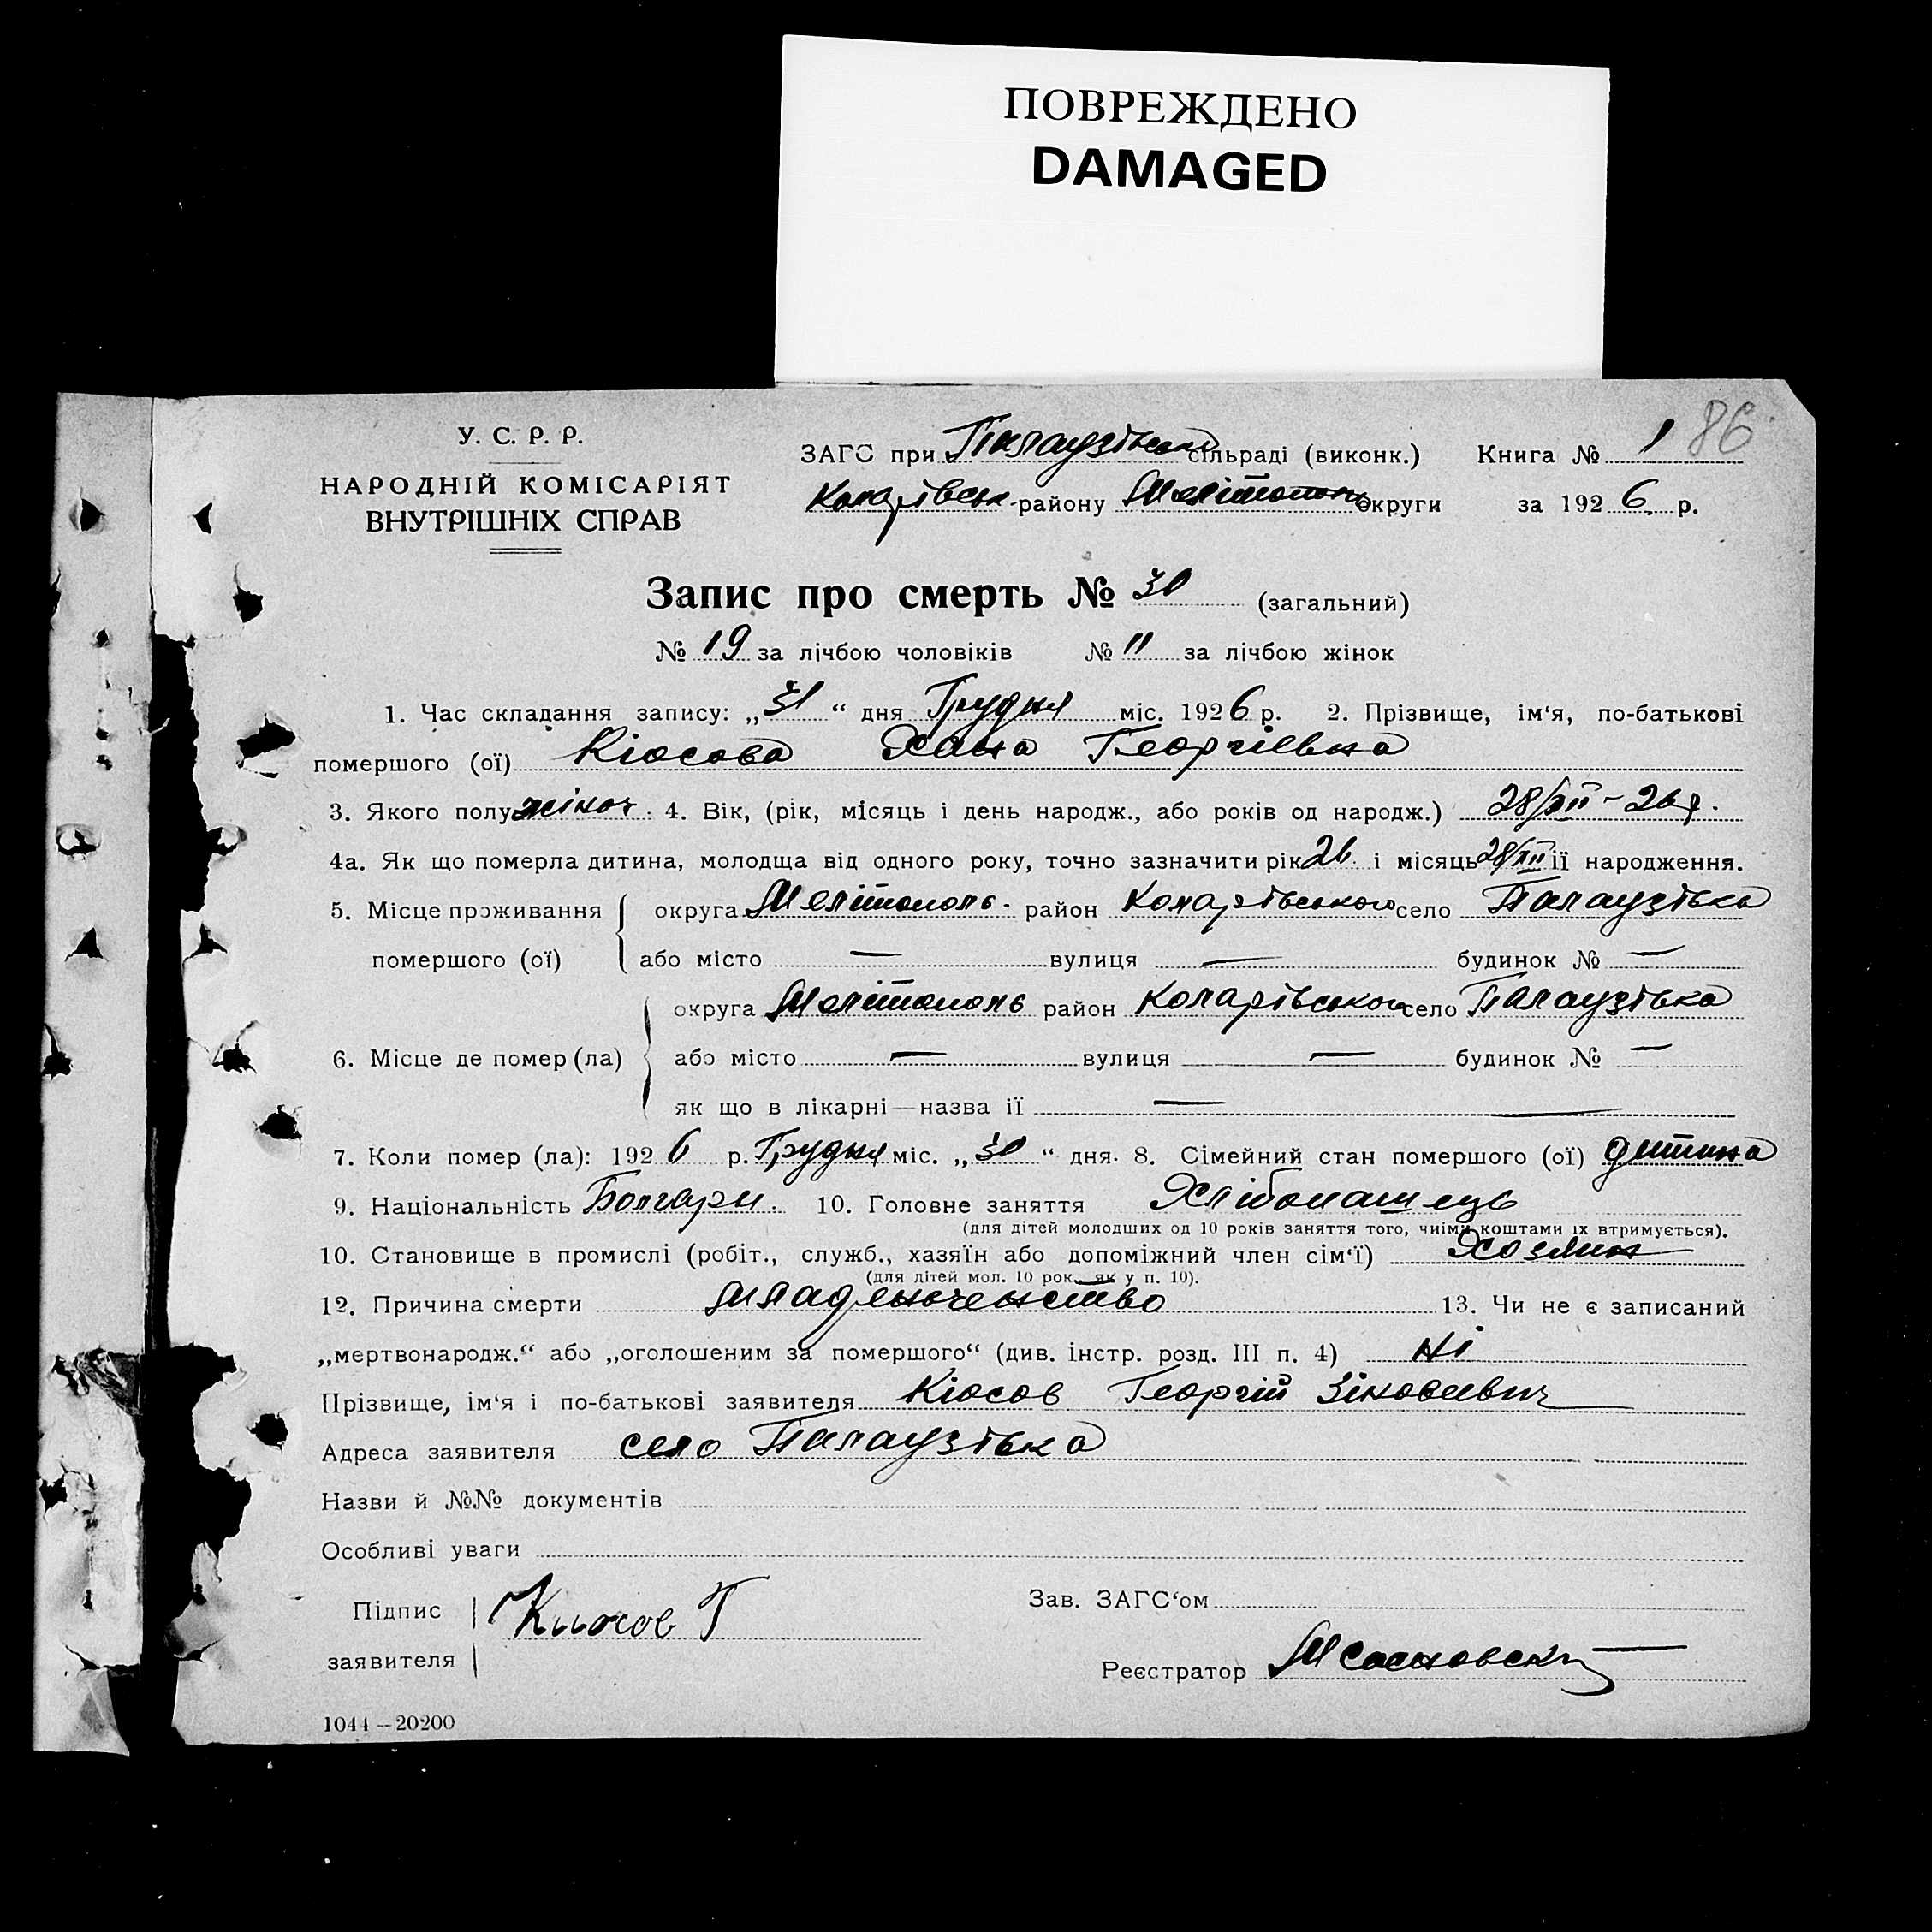 ПОВРЕЖДЕНО
DAMAGED
86
У. С. Р. Р.
НАРОДНІЙ КОМІСАРІЯТ
ВНУТРІШНІХ СПРАВ
ЗАГС при Палаузівській сільраді (виконк.) Книга № 1
Коларівськ. району Мелітополь округи за 1926 р.
Запис про смерть № 30 (загальний)
№ 19 за лічбою чоловіків № 11 за лічбою жінок
1. Час складання запису: „31“ дня Грудня міс. 1926 р. 2. Прізвище, ім‘я, по-батькові
помершого (ої) Кіосова Хана Георгіевна
3. Якого полу жіноч. 4. Вік, (рік, місяць і день народж., або років од народж.) 28/XII – 26 р.
4а. Як що померла дитина, молодща від одного року, точно зазначити рік 26 і місяць 28/XII її народження.
5. Місце проживання округа Мелітополь. район Коларівського село Палаузівка
помершого (ої) або місто — вулиця — будинок № —
округа Мелітополь район Коларівського село Палаузівка
6. Місце де помер (ла) або місто — вулиця — будинок № —
як що в лікарні — назва її —
7. Коли помер (ла): 1926 р. Грудня міс. „30“ дня. 8. Сімейний стан помершого (ої) дитина
9. Національність Болгари. 10. Головне заняття Хлібопашець
(для дітей молодших од 10 років заняття того, чиїми коштами їх втримується).
10. Становище в промислі (робіт., служб., хазяїн або допоміжний член сім‘ї) Хозяин
(для дітей мол. 10 рок., як у п. 10).
12. Причина смерти младеноченство 13. Чи не є записаний
„мертвонародж.“ або „оголошеним за помершого“ (див. інстр. розд. III п. 4) Ні
Прізвище, ім‘я і по-батькові заявителя Кіосов Георгій Зіновеевич
Адреса заявителя село Палаузівка
Назви й №№ документів
Особливі уваги
Підпис
заявителя Киосов Г
Зав. ЗАГС‘ом
Реєстратор М Сосновский
1044 — 20200